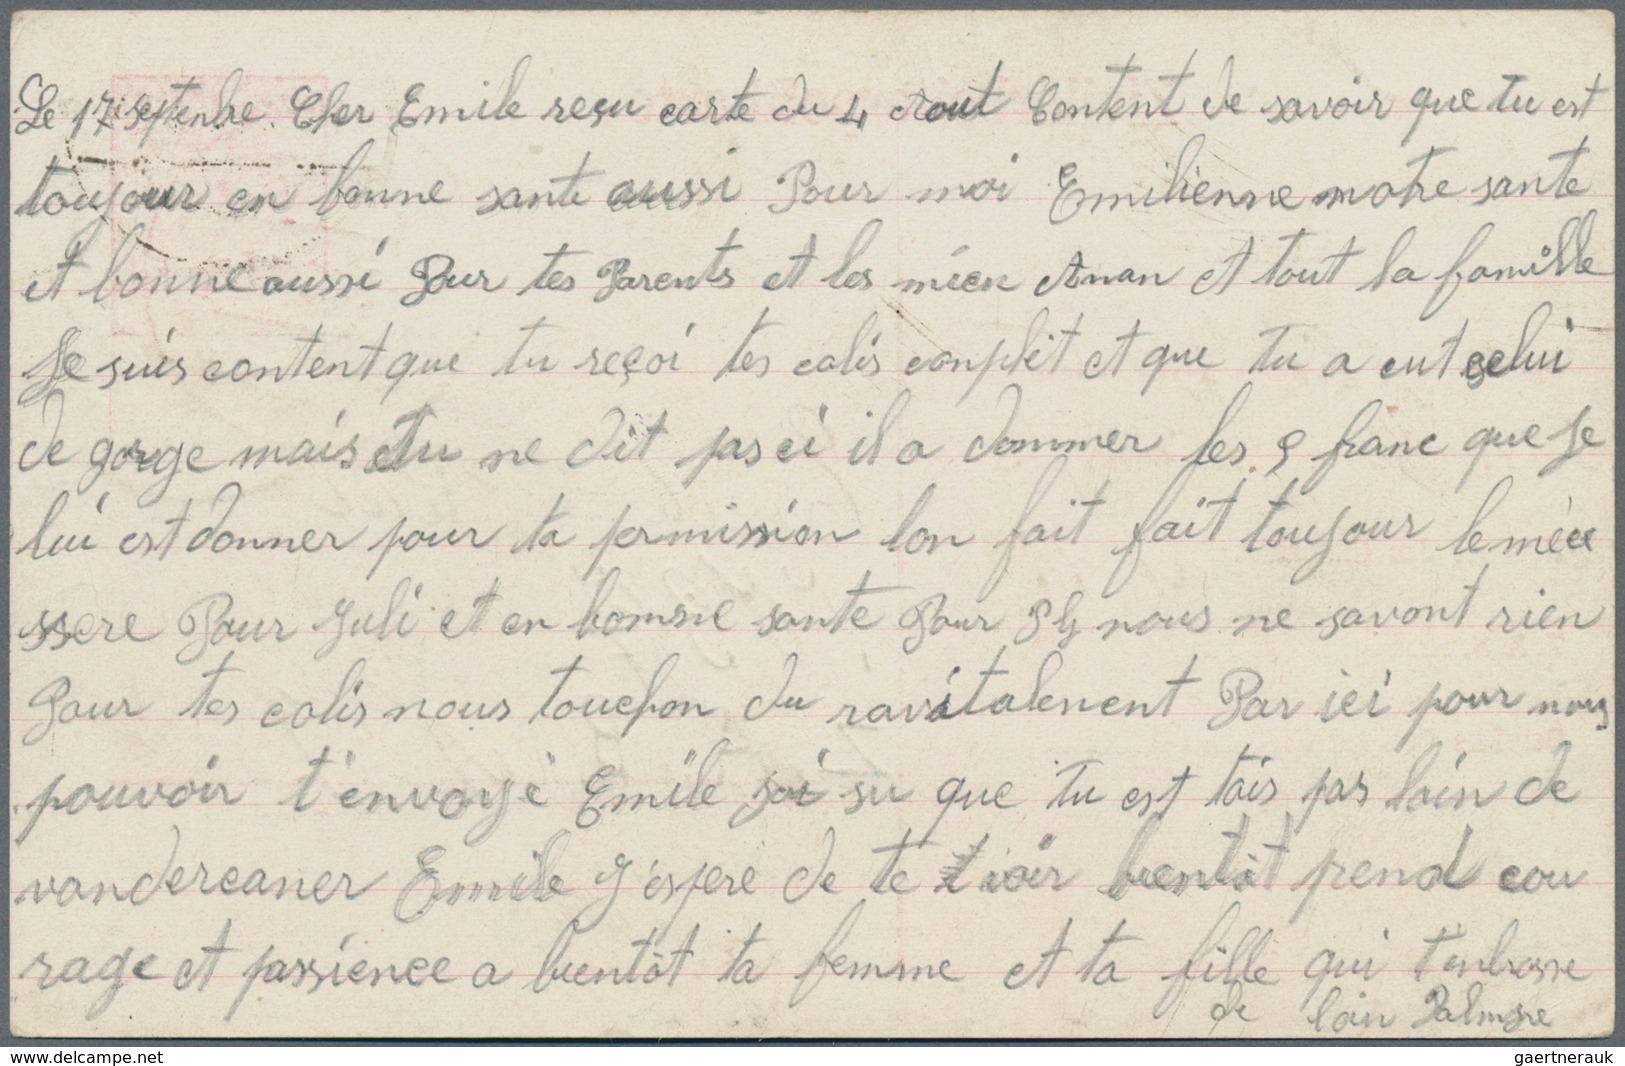 Le 17 septenbre Cher Emile reçu carte du 4 Aout Content de savoir que tu est
toujour en bonne sante aussi Pour moi Emilienne notre sante
et bonne aussi Pour tes Parents et les mien Anan et tout la famille
Je suis content que tu reçoi tes colis conplèt et que tu a eut celui
de gorge mais tu ne dit pas ci il a donner les 5 franc que Je
lui est donner pour ta permission lon fait fait toujour le
Pour Juli et en bonne sante Pour nous ne savont rien
Pour tes colis nous touchon du ravitalenent Par ici pour nous
pouvoir t'envoyé Emile su que tu est tais pas loin de
vandercaner Emile J'espere de te voir bientôt prend cou
rage et passience a bientôt ta femme et ta fille qui t'enbrasse
de loin Palmire
delcampe.net
gaertnerauk